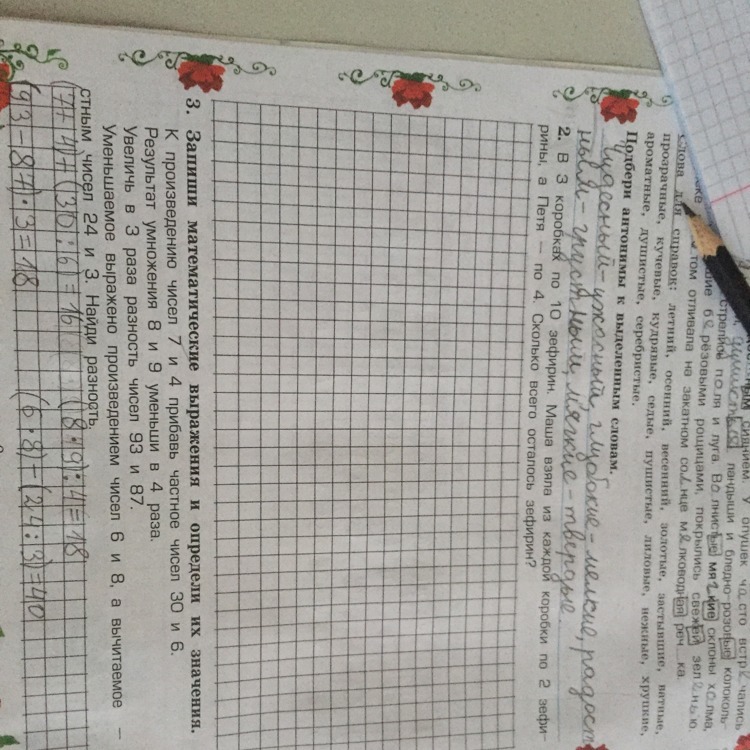 сиянием. У опушек часто встречались
ландыши и бледно-розовые колоколь-
поля и луга. Волнистые мягкие склоны холма,
берёзовыми рощицами, покрылись свежей зеленью.
том отливала на закатном солнце мелководная реч ка.
Слова для справок: летний, осенний, весенний, золотые, застывшие, ватные,
прозрачные, кучевые, кудрявые, седые, пушистые, лиловые, нежные, хрупкие,
ароматные, душистые, серебристые.
Подбери антонимы к выделенным словам.
Чудесный-ужасный, глубокие-мелкие, радост
ным-грустным, мягкие-твердые.
2. В 3 коробках по 10 зефирин. Маша взяла из каждой коробки по 2 зефи-
рины, а Петя — по 4. Сколько всего осталось зефирин?
3. Запиши математические выражения и определи их значения.
К произведению чисел 7 и 4 прибавь частное чисел 30 и 6.
Результат умножения 8 и 9 уменьши в 4 раза.
Увеличь в 3 раза разность чисел 93 и 87.
Уменьшаемое выражено произведением чисел 6 и 8, а вычитаемое —
стным чисел 24 и 3. Найди разность.
(7+4)+(30:6)=16 (8·9):4=18
(93-87)·3=18 (6·8)-(24:3)=40